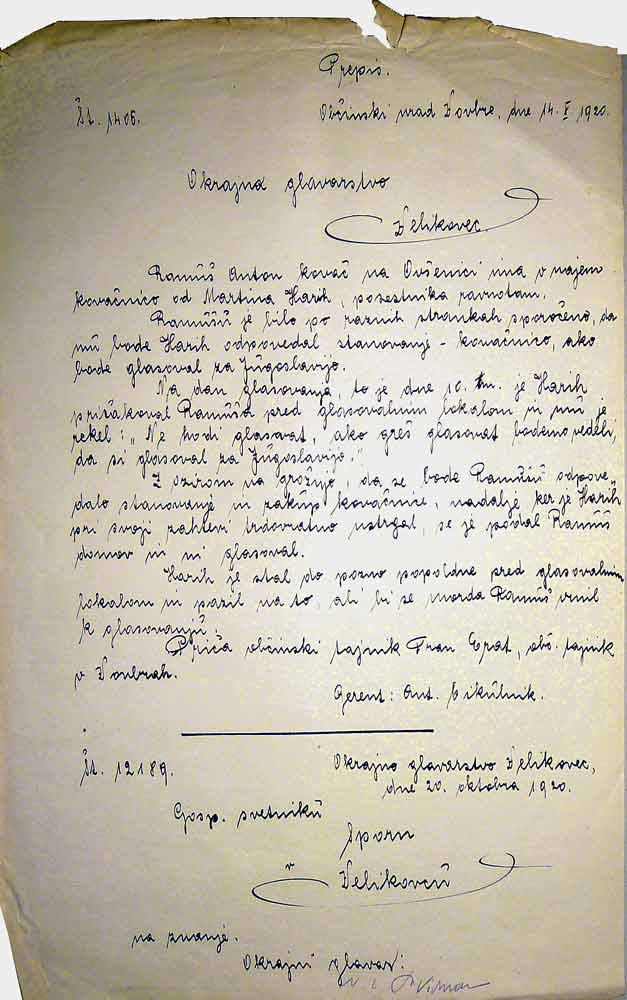 Prepis.
Št. 1406.
Občinski urad Vovbre, dne 14. X 1920.
Okrajna glavarstvo
Velikovec.
Ramüš Anton kovač na Ovšenici ima v najem
kovačnico od Martina Harih, posestnika ravnotam.
Ramüšü je bilo po raznih strankah sporočeno, da
mü bode Harih odpovedal stanovanje - kovačnico, ako
bode glasoval za Jügoslavijo.
Na dan glasovanja, to je dne 10. tm. je Harih
pričakoval Ramüša pred glasovalnim lokalom in mü je
rekel: „Ne hodi glasovat, ako greš glasovat bodemo vedeli,
da si glasoval za Jügoslavijo."
Z ozirom na grožnjo, da se bode Ramüšü odpove„
dalo stanovanje in zaküp kovačnice, nadalje ker je Harih
pri svoji zahtevi trdovratno ustrgal, se je podal Ramüš
domov in ni glasoval.
Harih je stal do pozno popoldne pred glasovalnim
lokalom in pazil na to, ali bi se morda Ramüš vrnil
k glasovanjü.
Priča občinski tajnik Fran Erat, obč. tajnik
v Vovbrah.
Gerent: Ant.
Št. 12189.
Okrajno glavarstvo Velikovec,
dne 20. oktobra 1920.
Gosp. svetnikü
Sporn
v
Velikovcü
na znanje.
Okrajni glavar: